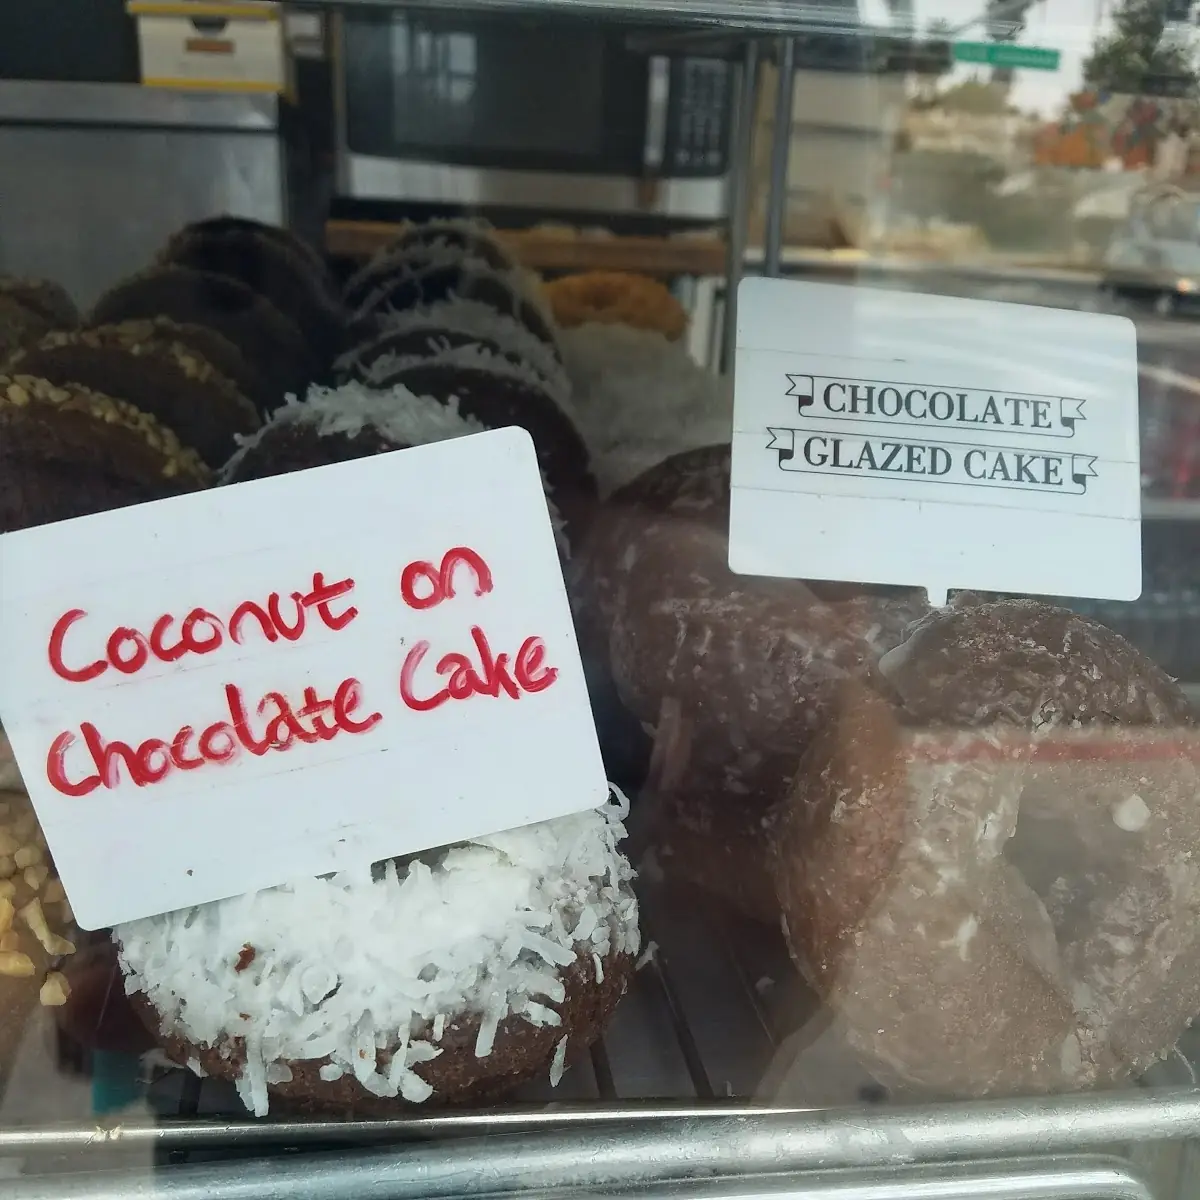 Coconut on
Chocolate Cake
CHOCOLATE
GLAZED CAKE